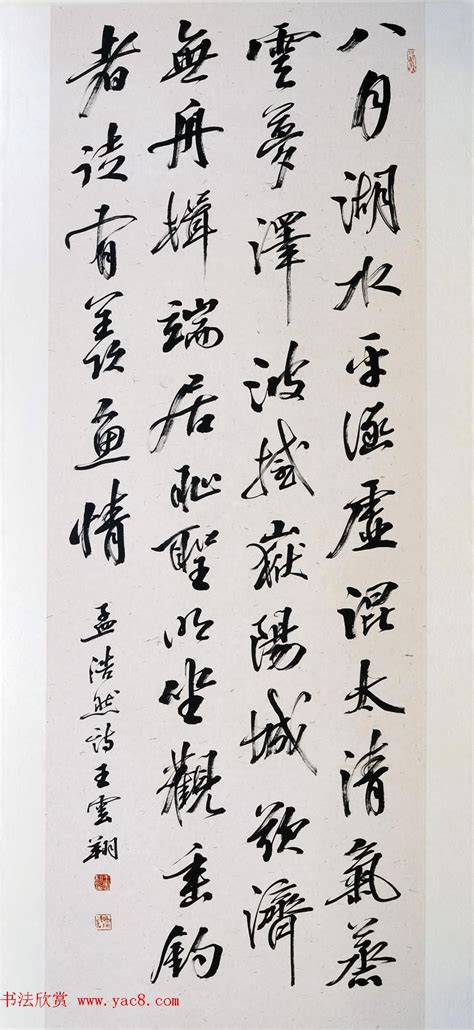 八月湖水平涵虛混太清氣蒸
雲夢澤波撼嶽陽城欲濟
無舟楫端居恥聖明坐觀垂釣
者徒有羨魚情
孟浩然詩王雲翔
书法欣赏 www.yac8.com